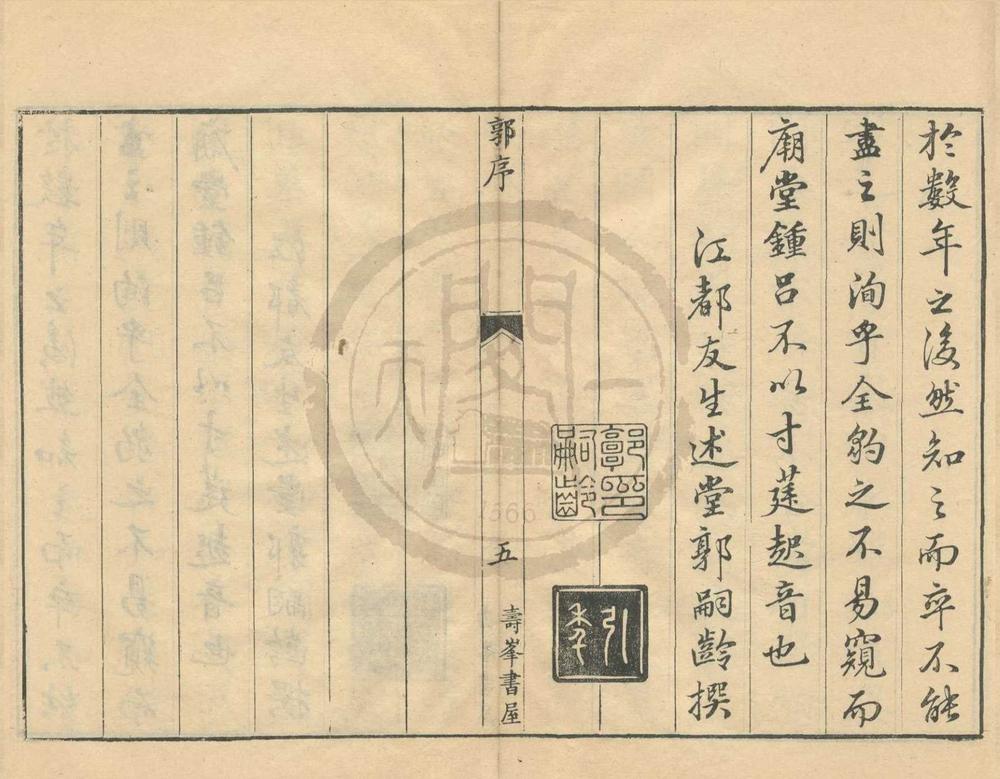 於數年之後然知之而卒不能
盡之則洵乎全豹之不易窺而
廟堂鍾呂不以寸莛起音也
江都友生述堂郭嗣齡撰
郭印嗣齡
引年
郭序
五
壽峯書屋
天一閣
1566